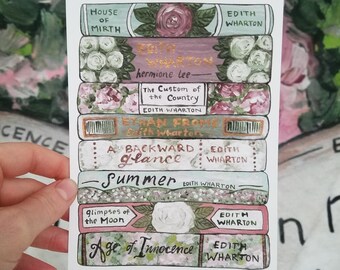 HOUSE
OF
MIRTH
EDITH
WHARTON
EDITH
WHARTON
hermione lee
The Custom of
the Country
EDITH WHARTON
ETHAN FROME
Edith Wharton
A BACKWARD
glance
EDITH
WHARTON
Summer
EDITH WHARTON
Glimpses of
the Moon
EDITH
WHARTON
Age of Innocence
EDITH
WHARTON